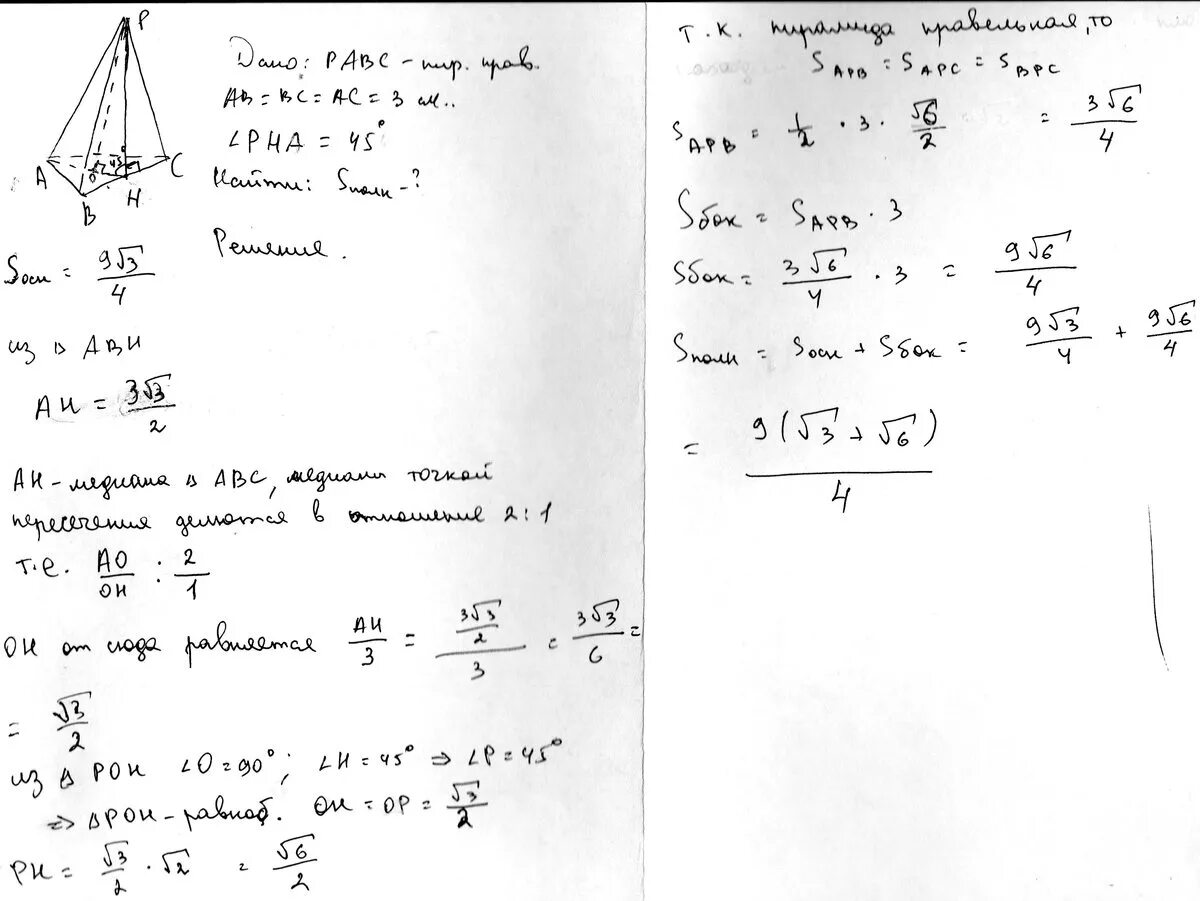 P
A
B
C
H
O
45°
Дано: PABC – пир. прав.
AB = BC = AC = 3 см..
∠PHA = 45°
Найти: Sполн - ?
Решение.
Sосн = 9√3/4
из ▵ ABH
AH = 3√3/2
AH – медиана ▵ ABC, медианы точкой
пересечения делются в отношение 2:1
т.е. AO/OH : 2/1
OH от сюда равняется AH/3 = (3√3/2)/3 = 3√3/6 =
= √3/2
из ▵ POH ∠O = 90°; ∠H = 45° ⇒ ∠P = 45°
⇒ ▵POH – равноб. OH = OP = √3/2
PH = √3/2 · √2 = √6/2
Т.К. пирамида правельная, то
S APB = S APC = S BPC
S APB = 1/2 · 3 · √6/2 = 3√6/4
Sбок = S APB · 3
Sбок = 3√6/4 · 3 = 9√6/4
Sполн = Sосн + Sбок = 9√3/4 + 9√6/4
= 9(√3 + √6)/4